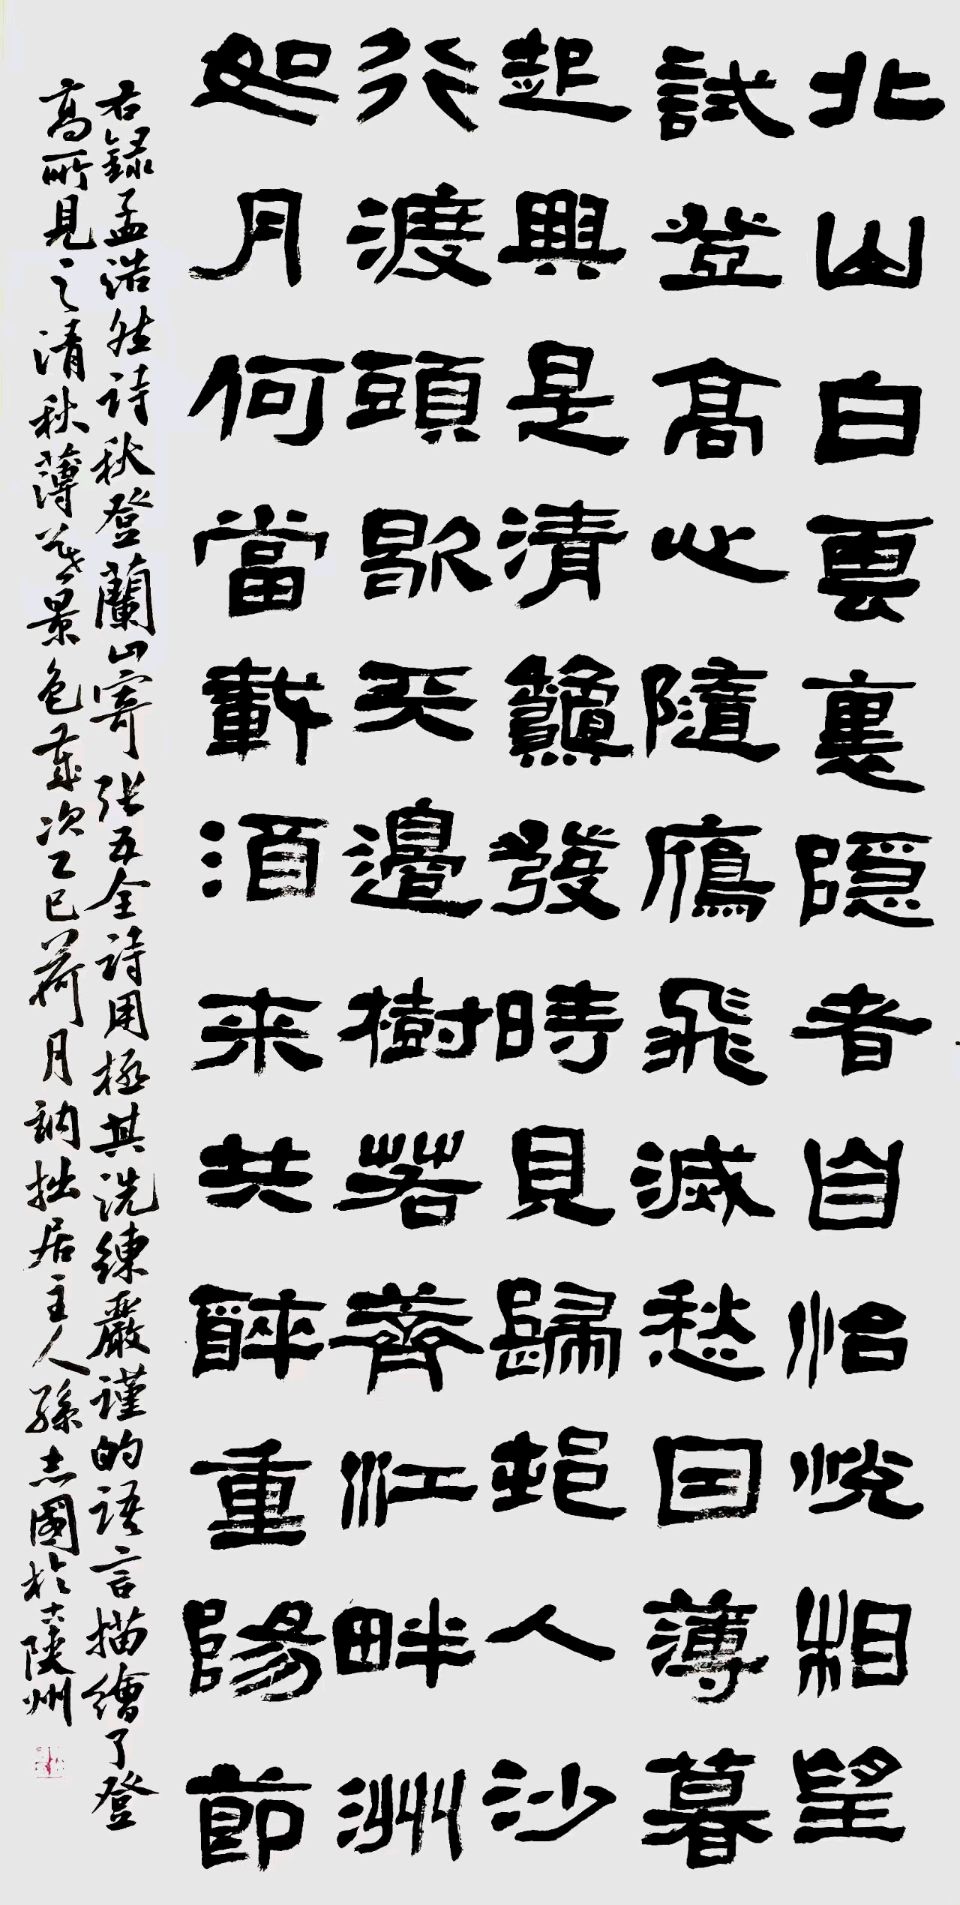 北山白雲裏隱者自怡悅相望
試登高心隨鴈飛滅愁因薄暮
起興是清籟發時見歸邨人沙
行渡頭歇天邊樹若薺江畔洲
如月何當載酒來共醉重陽節
右錄孟浩然詩秋登蘭山寄張五全詩用極其洗練嚴謹的語言描繪了登
高所見之清秋薄暮景色歲次乙巳荷月訥拙居主人孫志國於古陝州